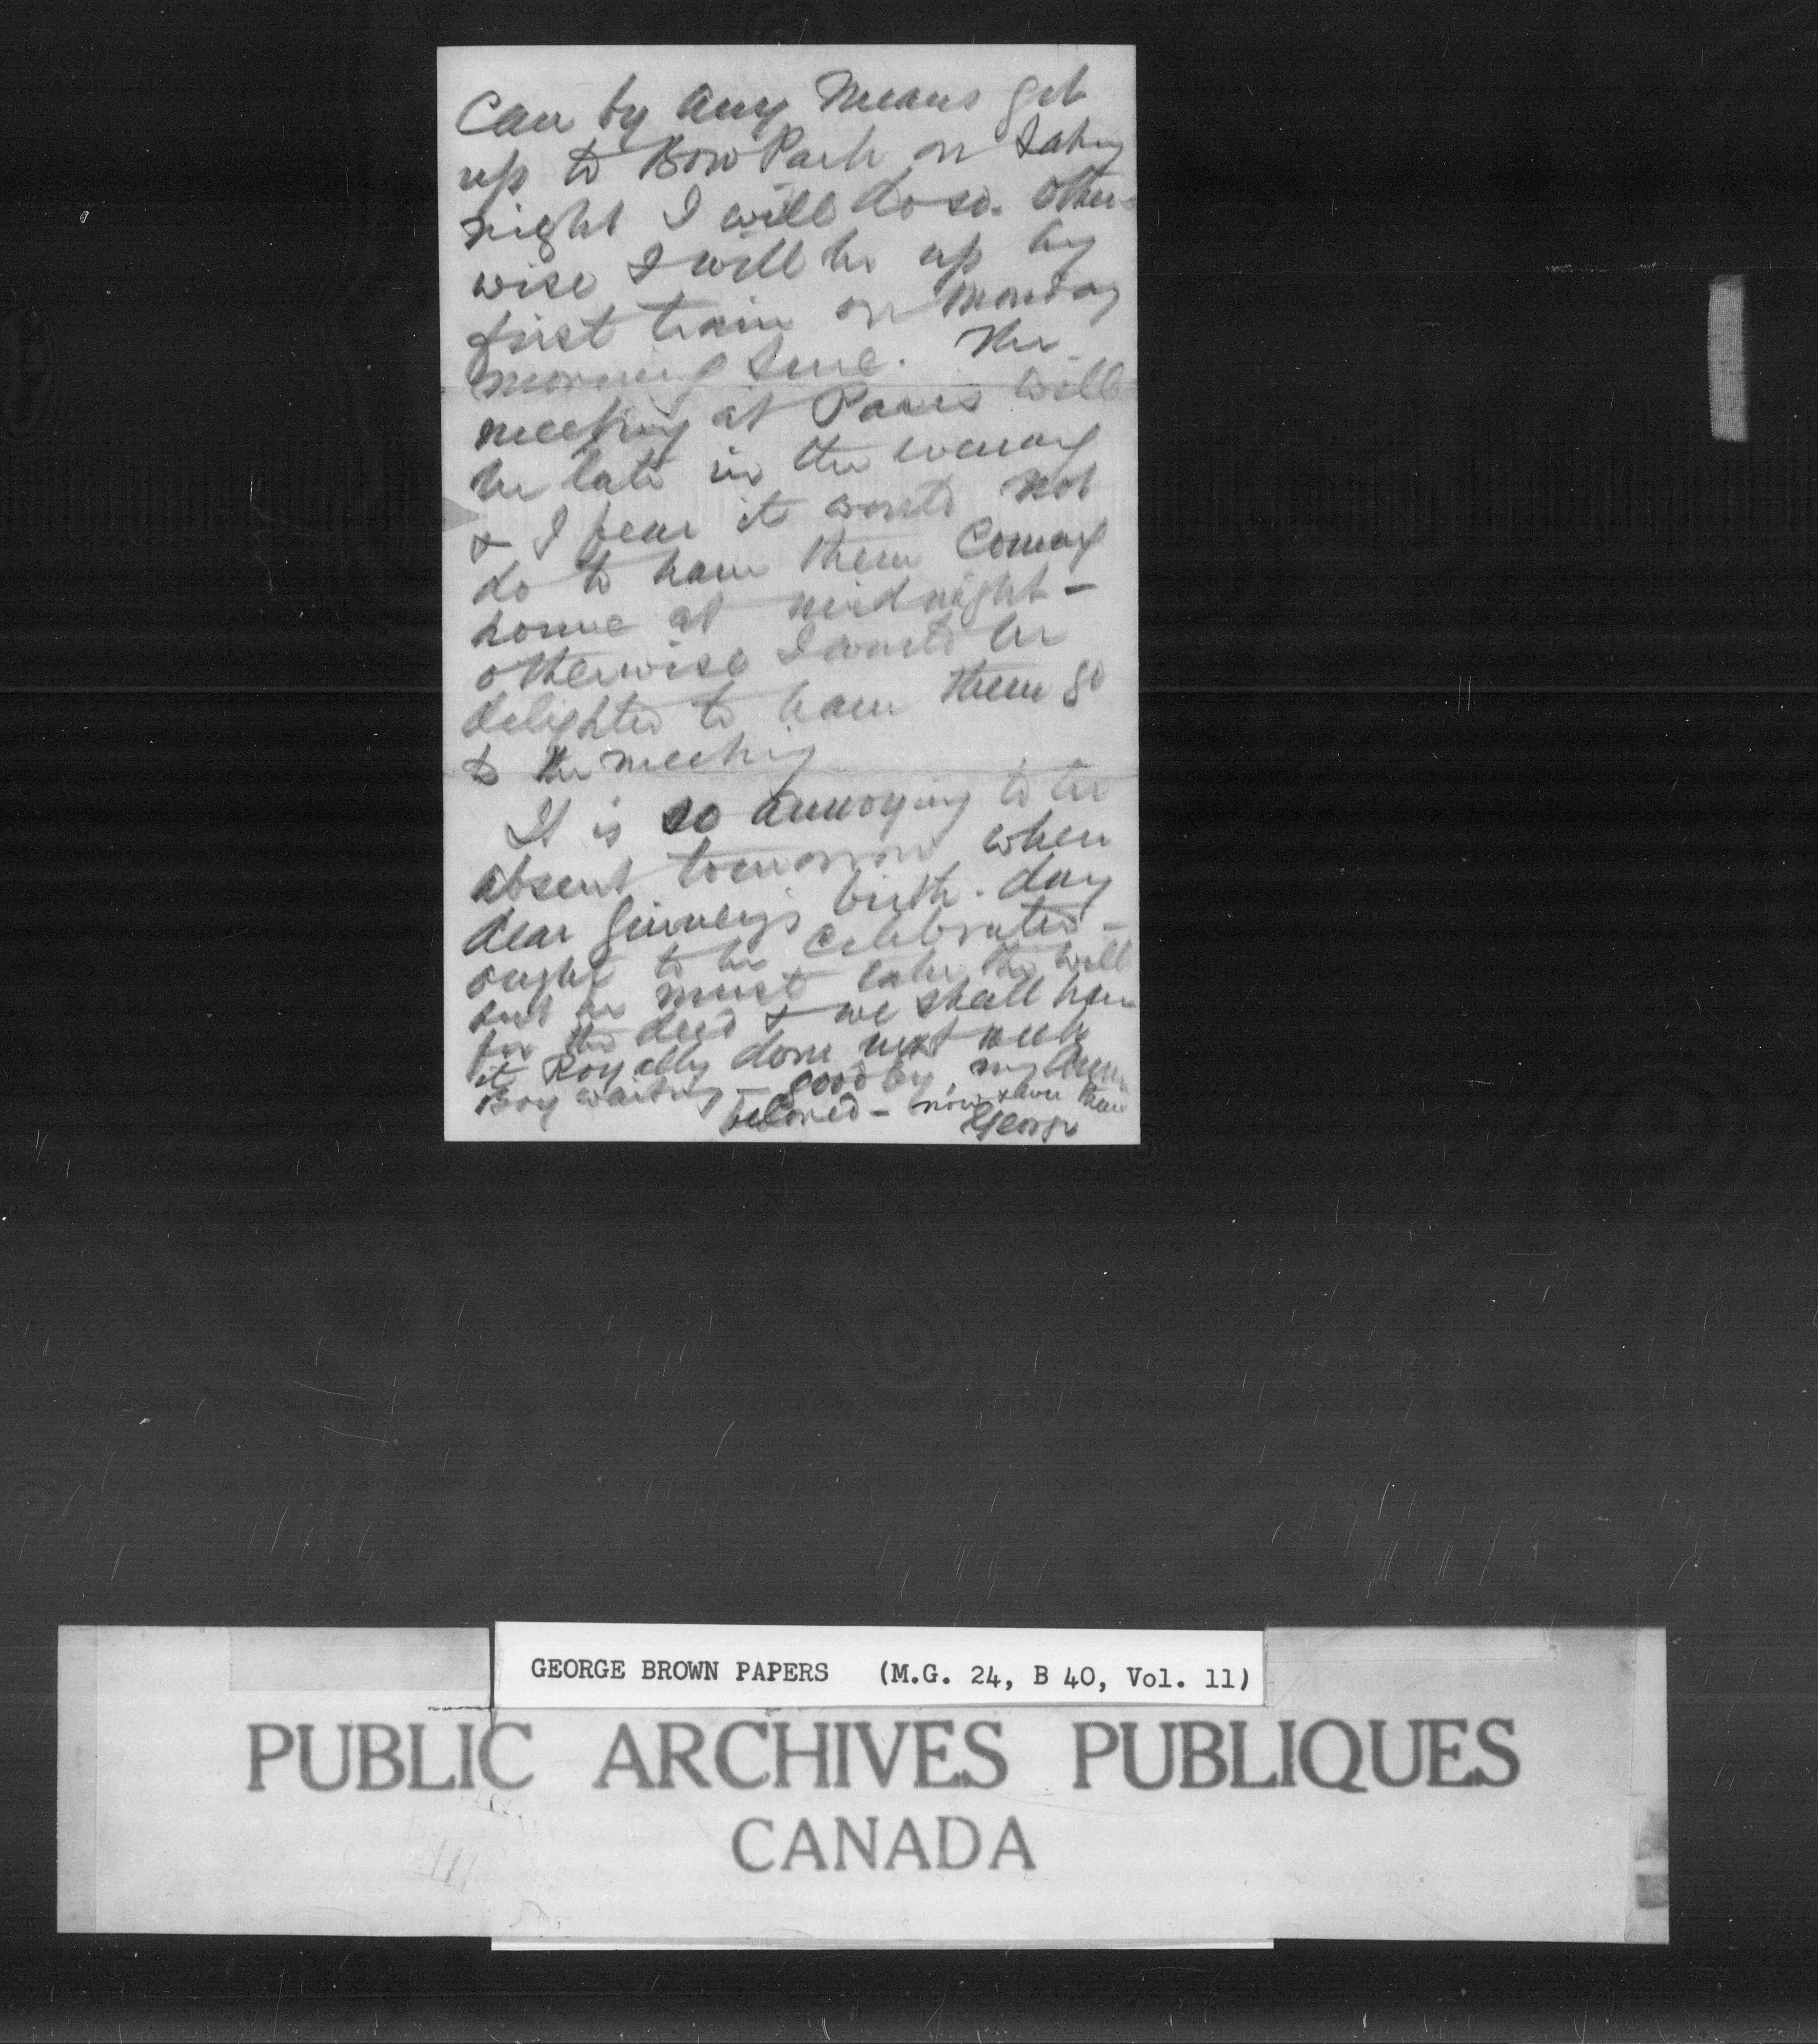 Can by any means get
up to Bow Park on Saty
night I will do so. Other-
wise I will be up by
first train on Monday
morning sure. The
meeting at Paris will
be late in the evening
& I fear it would not
do to have them coming
home at midnight -
otherwise I would be
delighted to have them go
to the meeting
It is so annoying to be
absent tomorrow when
dear birth-day
ought to be celebrated -
but he must take the will
for the deed & we shall have
it Royally done next week
Boy waiting - good by, my
beloved - now & ever
George
GEORGE BROWN PAPERS (M.G. 24, B 40, Vol. 11)
PUBLIC ARCHIVES PUBLIQUES
CANADA